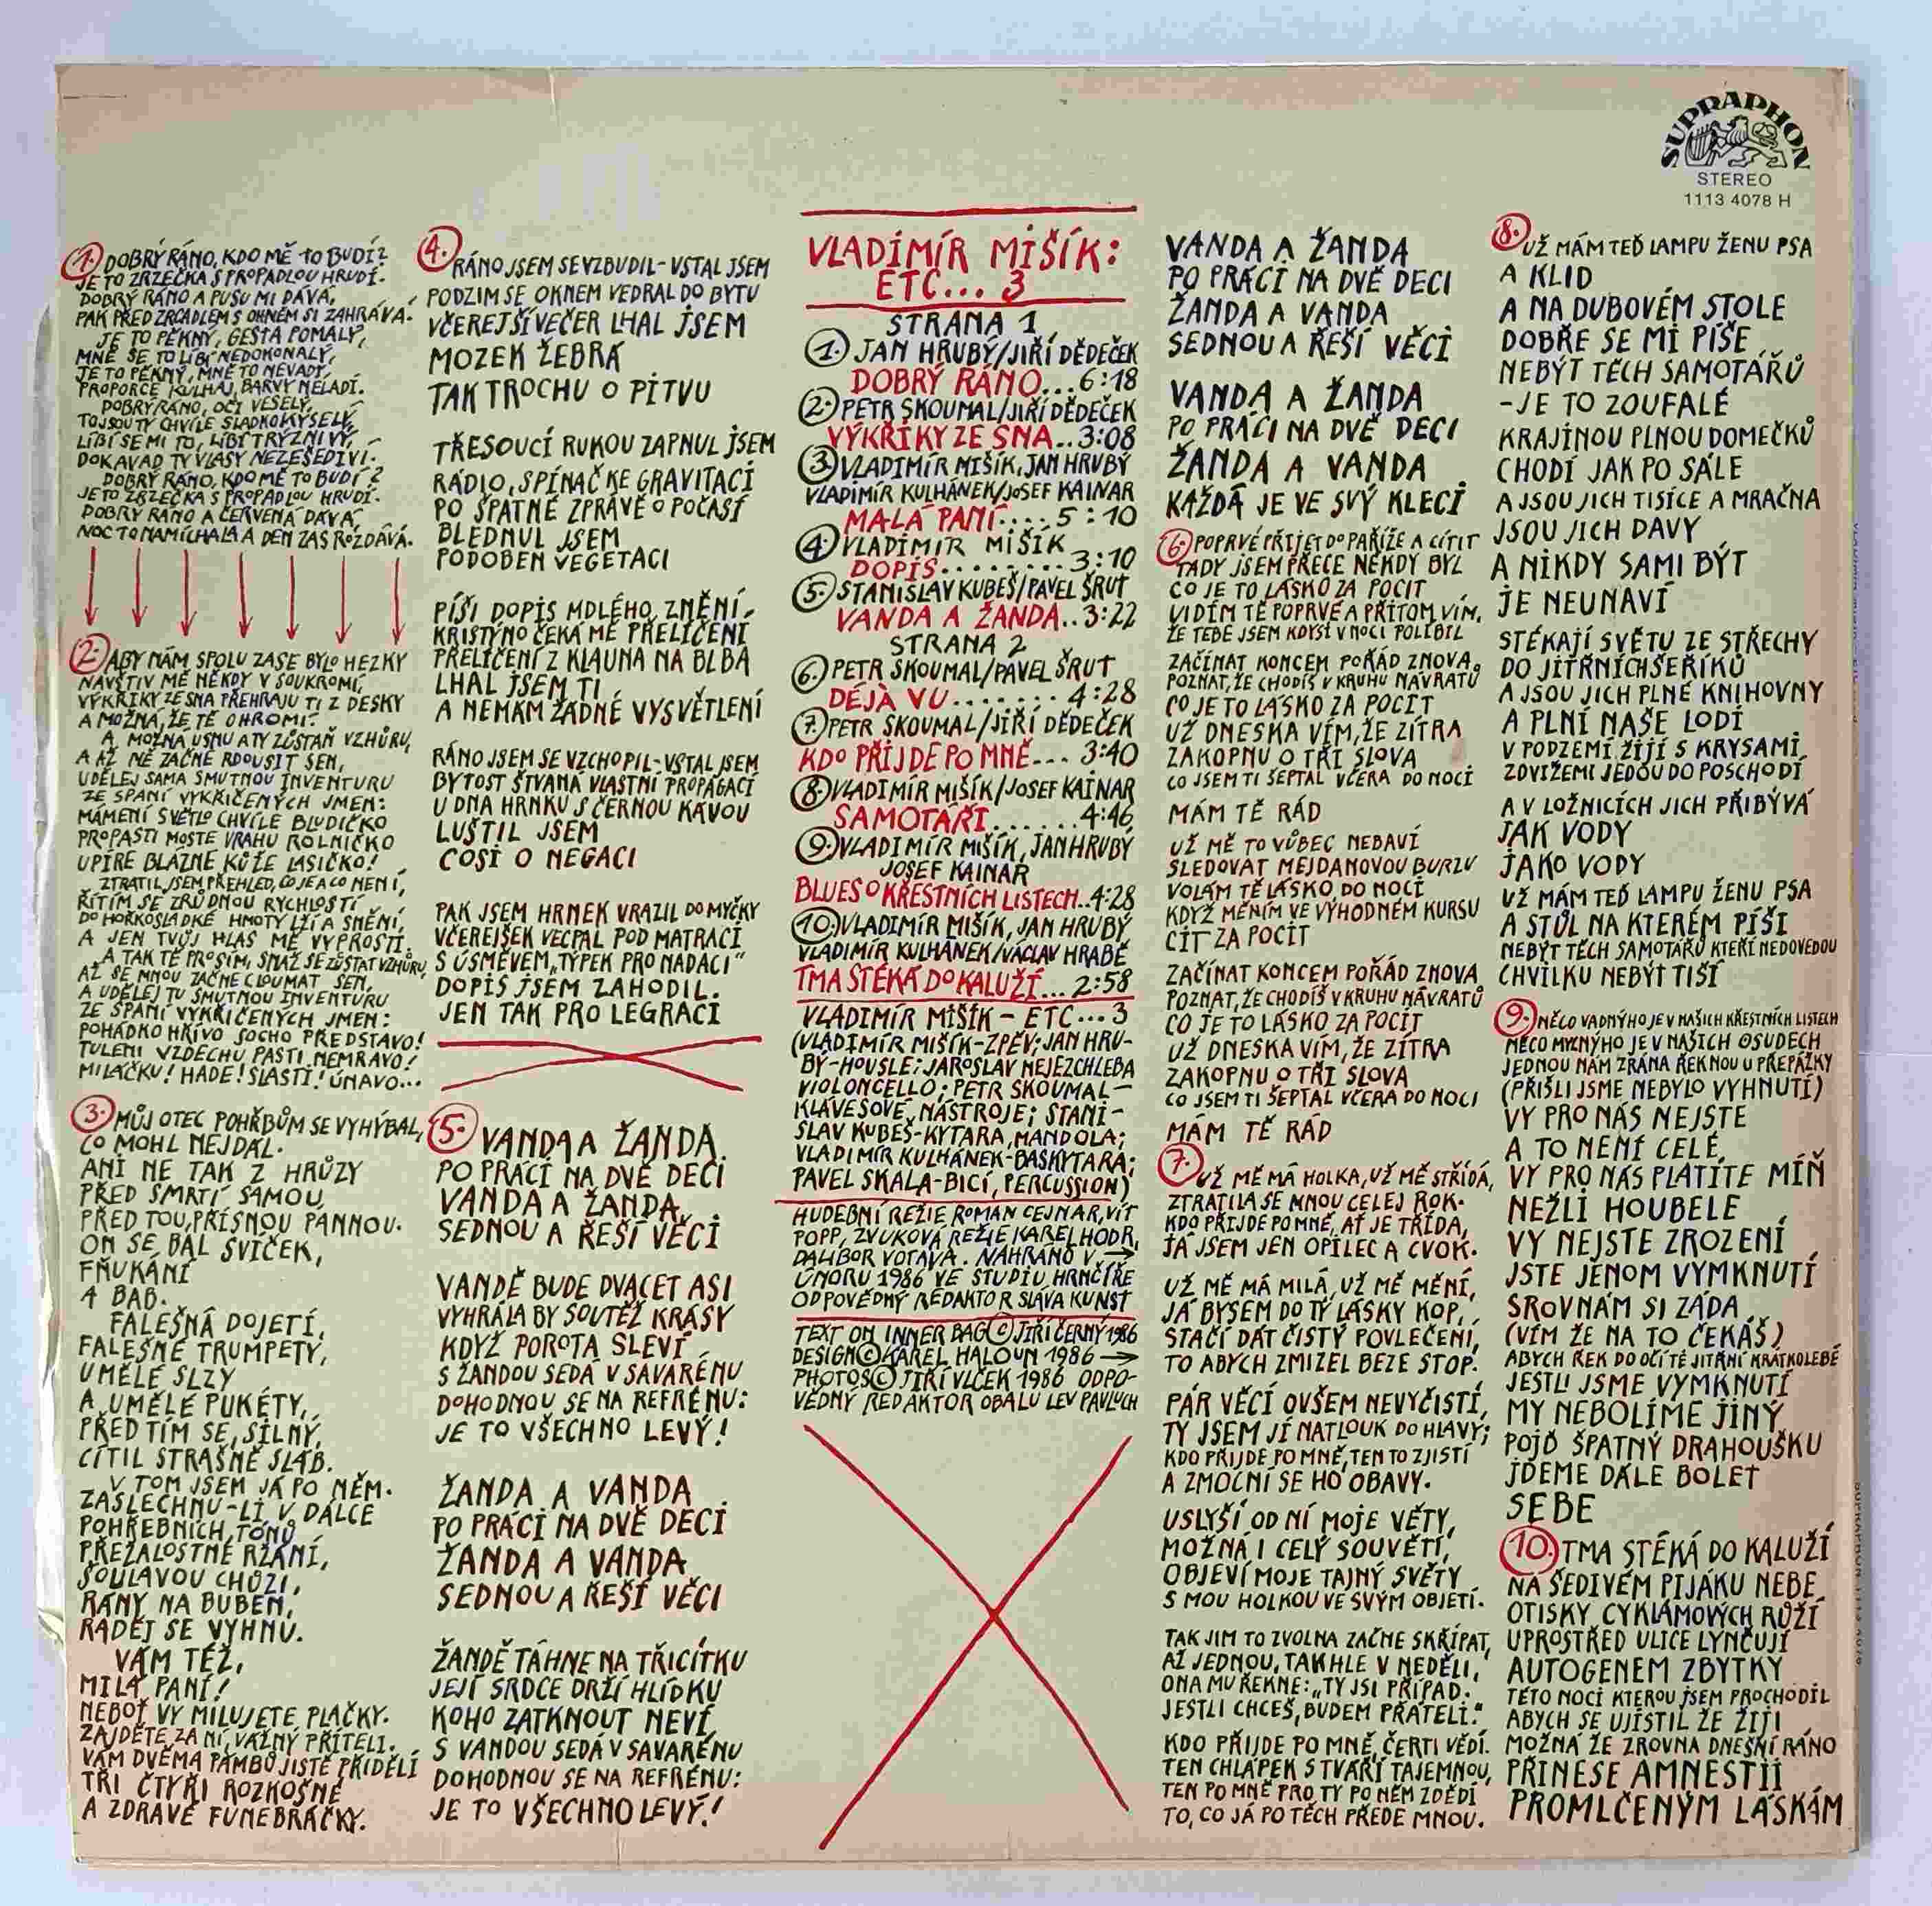 SUPRAPHON
STEREO
1113 4078 H
1. DOBRÝ RÁNO, KDO MĚ TO BUDÍ?
JE TO ZRZEČKA S PROPADLOU HRUDÍ.
DOBRÝ RÁNO A PUSU MI DÁVÁ,
PAK PŘED ZRCADLEM S OHNĚM SI ZAHRÁVÁ.
JE TO PĚKNÝ, GESTA POMALÝ,
MNĚ SE TO LÍBÍ NEDOKONALÝ,
JE TO PĚKNÝ, MNĚ TO NEVADÍ,
PROPORCE KULHAJ, BARVY NELADÍ.
DOBRÝ RÁNO, OČI VESELÝ,
TO JSOU TY CHVÍLE SLADKOKYSELÝ,
LÍBÍ SE MI TO, LÍBÍ TRÝZNIVÝ,
DOKAVAD TY VLASY NEZEŠEDIVÍ.
DOBRÝ RÁNO, KDO MĚ TO BUDÍ?
JE TO ZRZEČKA S PROPADLOU HRUDÍ.
DOBRÝ RÁNO A ČERVENÁ DÁVÁ,
NOC TO NAMÍCHALA A DEN ZAS ROZDÁVÁ.
2. ABY NÁM SPOLU ZASE BYLO HEZKY
NAVŠTIV MĚ NĚKDY V SOUKROMÍ,
VÝKŘIKY ZE SNA PŘEHRAJU TI Z DESKY
A MOŽNÁ, ŽE TĚ OHROMÍ.
A MOŽNÁ USNU A TY ZŮSTAŇ VZHŮRU,
A AŽ MĚ ZAČNE RDOUSIT SEN,
UDĚLEJ SAMA SMUTNOU INVENTURU
ZE SPANÍ VYKŘIČENÝCH JMEN:
MÁMENÍ SVĚTLO CHVÍLE BLUDIČKO
PROPASTI MOSTE VRAHU ROLNIČKO
UPÍRE BLÁZNE KŮŽE LASIČKO!
ZTRATIL JSEM PŘEHLED, CO JE A CO NENÍ,
ŘÍTÍM SE ZRŮDNOU RYCHLOSTÍ
DO HOŘKOSLADKÉ HMOTY LŽÍ A SNĚNÍ,
A JEN TVŮJ HLAS MĚ VYPROSTÍ.
A TAK TĚ PROSÍM, SNAŽ SE ZŮSTAT VZHŮRU,
AŽ SE MNOU ZAČNE CLOUMAT SEN,
A UDĚLEJ TU SMUTNOU INVENTURU
ZE SPANÍ VYKŘIČENÝCH JMEN:
POHÁDKO HŘÍVO SOCHO PŘEDSTAVO!
TULENI VZDECHU PASTI NEMRAVO!
MILÁČKU! HADE! SLASTI! ÚNAVO...
3. MŮJ OTEC POHŘBŮM SE VYHÝBAL,
CO MOHL NEJDÁL.
ANI NE TAK Z HRŮZY
PŘED SMRTÍ SAMOU,
PŘED TOU PŘÍSNOU PANNOU.
ON SE BÁL SVÍČEK,
FŇUKÁNÍ
A BAB.
FALEŠNÁ DOJETÍ,
FALEŠNÉ TRUMPETY,
UMĚLÉ SLZY
A UMĚLÉ PUKÉTY,
PŘED TÍM SE, SILNÝ,
CÍTIL STRAŠNĚ SLÁB.
V TOM JSEM JÁ PO NĚM.
ZASLECHNU-LI V DÁLCE
POHŘEBNÍCH TÓNŮ
PŘEŽALOSTNÉ RŽÁNÍ,
ŠOULAVOU CHŮZI,
RÁNY NA BUBEN,
RADĚJ SE VYHNU.
VÁM TÉŽ,
MILÁ PANÍ!
NEBOŤ VY MILUJETE PLAČKY.
ZAJDĚTE ZA NÍ, VÁŽNÝ PŘÍTELI.
VÁM DVĚMA PÁMBŮ JISTĚ PŘIDĚLÍ
TŘI ČTYŘI ROZKOŠNÉ
A ZDRAVÉ FUNEBRÁČKY.
4. RÁNO JSEM SE VZBUDIL - VSTAL JSEM
PODZIM SE OKNEM VEDRAL DO BYTU
VČEREJŠÍ VEČER LHAL JSEM
MOZEK ŽEBRÁ
TAK TROCHU O PITVU
TŘESOUCÍ RUKOU ZAPNUL JSEM
RÁDIO, SPÍNAČ KE GRAVITACI
PO ŠPATNÉ ZPRÁVĚ O POČASÍ
BLEDNUL JSEM
PODOBEN VEGETACI
PÍŠI DOPIS MDLÉHO ZNĚNÍ
KRISTÝNO ČEKÁ MĚ PŘELÍČENÍ
PŘELÍČENÍ Z KLAUNA NA BLBA
LHAL JSEM TI
A NEMÁM ŽÁDNÉ VYSVĚTLENÍ
RÁNO JSEM SE VZCHOPIL - VSTAL JSEM
BYTOST ŠTVANÁ VLASTNÍ PROPAGACÍ
U DNA HRNKU S ČERNOU KÁVOU
LUŠTIL JSEM
COSI O NEGACI
PAK JSEM HRNEK VRAZIL DO MYČKY
VČEREJŠEK VECPAL POD MATRACI
S ÚSMĚVEM „TÝPEK PRO NADACI"
DOPIS JSEM ZAHODIL.
JEN TAK PRO LEGRACI
5. VANDA A ŽANDA
PO PRÁCI NA DVĚ DECI
VANDA A ŽANDA
SEDNOU A ŘEŠÍ VĚCI
VANDĚ BUDE DVACET ASI
VYHRÁLA BY SOUTĚŽ KRÁSY
KDYŽ POROTA SLEVÍ
S ŽANDOU SEDÁ V SAVARÉNU
DOHODNOU SE NA REFRÉNU:
JE TO VŠECHNO LEVÝ!
ŽANDA A VANDA
PO PRÁCI NA DVĚ DECI
ŽANDA A VANDA
SEDNOU A ŘEŠÍ VĚCI
ŽANDĚ TÁHNE NA TŘICÍTKU
JEJÍ SRDCE DRŽÍ HLÍDKU
KOHO ZATKNOUT NEVÍ
S VANDOU SEDÁ V SAVARÉNU
DOHODNOU SE NA REFRÉNU:
JE TO VŠECHNO LEVÝ!
VLADIMÍR MIŠÍK:
ETC... 3
STRANA 1
1. JAN HRUBÝ/JIŘÍ DĚDEČEK
DOBRÝ RÁNO...6:18
2. PETR SKOUMAL/JIŘÍ DĚDEČEK
VÝKŘIKY ZE SNA..3:08
3. VLADIMÍR MIŠÍK, JAN HRUBÝ
VLADIMÍR KULHÁNEK/JOSEF KAINAR
MALÁ PANÍ....5:10
4. VLADIMÍR MIŠÍK
DOPIS........3:10
5. STANISLAV KUBEŠ/PAVEL ŠRUT
VANDA A ŽANDA..3:22
STRANA 2
6. PETR SKOUMAL/PAVEL ŠRUT
DÉJÀ VU.......4:28
7. PETR SKOUMAL/JIŘÍ DĚDEČEK
KDO PŘIJDE PO MNĚ... 3:40
8. VLADIMÍR MIŠÍK/JOSEF KAINAR
SAMOTÁŘI.......4:46
9. VLADIMÍR MIŠÍK, JAN HRUBÝ
JOSEF KAINAR
BLUES O KŘESTNÍCH LISTECH..4:28
10. VLADIMÍR MIŠÍK, JAN HRUBÝ
VLADIMÍR KULHÁNEK/VÁCLAV HRABĚ
TMA STÉKÁ DO KALUŽÍ...2:58
VLADIMÍR MIŠÍK - ETC...3
(VLADIMÍR MIŠÍK-ZPĚV; JAN HRU-
BÝ-HOUSLE; JAROSLAV NEJEZCHLEBA
VIOLONCELLO; PETR SKOUMAL-
KLÁVESOVÉ NÁSTROJE; STANI-
SLAV KUBEŠ-KYTARA, MANDOLA;
VLADIMÍR KULHÁNEK-BASKYTARA;
PAVEL SKALA-BICÍ, PERCUSSION)
HUDEBNÍ REŽIE ROMAN CEJNAR, VÍT
POPP, ZVUKOVÁ REŽIE KAREL HODR,
DALIBOR VOTAVA. NAHRÁNO V →
ÚNORU 1986 VE STUDIU HRNČÍŘE
ODPOVĚDNÝ REDAKTOR SLÁVA KUNST
TEXT ON INNER BAG © JIŘÍ ČERNÝ 1986
DESIGN © KAREL HALOUN 1986 →
PHOTOS © JIŘÍ VLČEK 1986 ODPO-
VĚDNÝ REDAKTOR OBALU LEV PAVLUCH
VANDA A ŽANDA
PO PRÁCI NA DVĚ DECI
ŽANDA A VANDA
SEDNOU A ŘEŠÍ VĚCI
VANDA A ŽANDA
PO PRÁCI NA DVĚ DECI
ŽANDA A VANDA
KAŽDÁ JE VE SVÝ KLECI
6. POPRVÉ PŘIJET DO PAŘÍŽE A CÍTIT
TADY JSEM PŘECE NĚKDY BYL
CO JE TO LÁSKO ZA POCIT
VIDÍM TĚ POPRVÉ A PŘITOM VÍM,
ŽE TEBE JSEM KDYSI V NOCI POLÍBIL
ZAČÍNAT KONCEM POŘÁD ZNOVA
POZNAT, ŽE CHODÍŠ V KRUHU NÁVRATŮ
CO JE TO LÁSKO ZA POCIT
UŽ DNESKA VÍM, ŽE ZÍTRA
ZAKOPNU O TŘI SLOVA
CO JSEM TI ŠEPTAL VČERA DO NOCI
MÁM TĚ RÁD
UŽ MĚ TO VŮBEC NEBAVÍ
SLEDOVAT MEJDANOVOU BURZU
VOLÁM TĚ LÁSKO DO NOCI
KDYŽ MĚNÍM VE VÝHODNÉM KURSU
CIT ZA POCIT
ZAČÍNAT KONCEM POŘÁD ZNOVA
POZNAT, ŽE CHODÍŠ V KRUHU NÁVRATŮ
CO JE TO LÁSKO ZA POCIT
UŽ DNESKA VÍM, ŽE ZÍTRA
ZAKOPNU O TŘI SLOVA
CO JSEM TI ŠEPTAL VČERA DO NOCI
MÁM TĚ RÁD
7. UŽ MĚ MÁ HOLKA, UŽ MĚ STŘÍDÁ,
ZTRATILA SE MNOU CELEJ ROK.
KDO PŘIJDE PO MNĚ, AŤ JE TŘÍDA,
JÁ JSEM JEN OPILEC A CVOK.
UŽ MĚ MÁ MILÁ, UŽ MĚ MĚNÍ,
JÁ BYSEM DO TÝ LÁSKY KOP,
STAČÍ DÁT ČISTÝ POVLEČENÍ,
TO ABYCH ZMIZEL BEZE STOP.
PÁR VĚCÍ OVŠEM NEVYČISTÍ,
TY JSEM JÍ NATLOUK DO HLAVY;
KDO PŘIJDE PO MNĚ, TEN TO ZJISTÍ
A ZMOCNÍ SE HO OBAVY.
USLYŠÍ OD NÍ MOJE VĚTY,
MOŽNÁ I CELÝ SOUVĚTÍ,
OBJEVÍ MOJE TAJNÝ SVĚTY
S MOU HOLKOU VE SVÝM OBJETÍ.
TAK JIM TO ZVOLNA ZAČNE SKŘÍPAT,
AŽ JEDNOU, TAKHLE V NEDĚLI,
ONA MU ŘEKNE: „TY JSI PŘÍPAD.
JESTLI CHCEŠ, BUDEM PŘÁTELI."
KDO PŘIJDE PO MNĚ, ČERTI VĚDÍ.
TEN CHLÁPEK S TVÁŘÍ TAJEMNOU,
TEN PO MNĚ PRO TY PO NĚM ZDĚDÍ
TO, CO JÁ PO TĚCH PŘEDE MNOU.
8. UŽ MÁM TEĎ LAMPU ŽENU PSA
A KLID
A NA DUBOVÉM STOLE
DOBŘE SE MI PÍŠE
NEBÝT TĚCH SAMOTÁŘŮ
-JE TO ZOUFALÉ
KRAJINOU PLNOU DOMEČKŮ
CHODÍ JAK PO SÁLE
A JSOU JICH TISÍCE A MRAČNA
JSOU JICH DAVY
A NIKDY SAMI BÝT
JE NEUNAVÍ
STÉKAJÍ SVĚTU ZE STŘECHY
DO JITŘNÍCH ŠEŘÍKŮ
A JSOU JICH PLNÉ KNIHOVNY
A PLNÍ NAŠE LODI
V PODZEMÍ ŽIJÍ S KRYSAMI
ZDVIŽEMI JEDOU DO POSCHODÍ
A V LOŽNICÍCH JICH PŘIBÝVÁ
JAK VODY
JAKO VODY
UŽ MÁM TEĎ LAMPU ŽENU PSA
A STŮL NA KTERÉM PÍŠI
NEBÝT TĚCH SAMOTÁŘŮ KTEŘÍ NEDOVEDOU
CHVILKU NEBÝT TIŠÍ
9. NĚCO VADNÝHO JE V NAŠICH KŘESTNÍCH LISTECH
NĚCO MYLNÝHO JE V NAŠICH OSUDECH
JEDNOU NÁM ZRÁNA ŘEKNOU U PŘEPÁŽKY
(PŘIŠLI JSME NEBYLO VYHNUTÍ)
VY PRO NÁS NEJSTE
A TO NENÍ CELÉ,
VY PRO NÁS PLATÍTE MÍŇ
NEŽLI HOUBELE
VY NEJSTE ZROZENÍ
JSTE JENOM VYMKNUTÍ
SROVNÁM SI ZÁDA
(VÍM ŽE NA TO ČEKÁŠ)
ABYCH ŘEK DO OČÍ TÉ JITŘNÍ KRATKOLEBÉ
JESTLI JSME VYMKNUTÍ
MY NEBOLÍME JINÝ
POJĎ ŠPATNÝ DRAHOUŠKU
JDEME DÁLE BOLET
SEBE
10. TMA STÉKÁ DO KALUŽÍ
NA ŠEDIVÉM PIJÁKU NEBE
OTISKY CYKLÁMOVÝCH RŮŽÍ
UPROSTŘED ULICE LYNČUJÍ
AUTOGENEM ZBYTKY
TÉTO NOCI KTEROU JSEM PROCHODIL
ABYCH SE UJISTIL ŽE ŽIJI
MOŽNÁ ŽE ZROVNA DNEŠNÍ RÁNO
PŘINESE AMNESTII
PROMLČENÝM LÁSKÁM